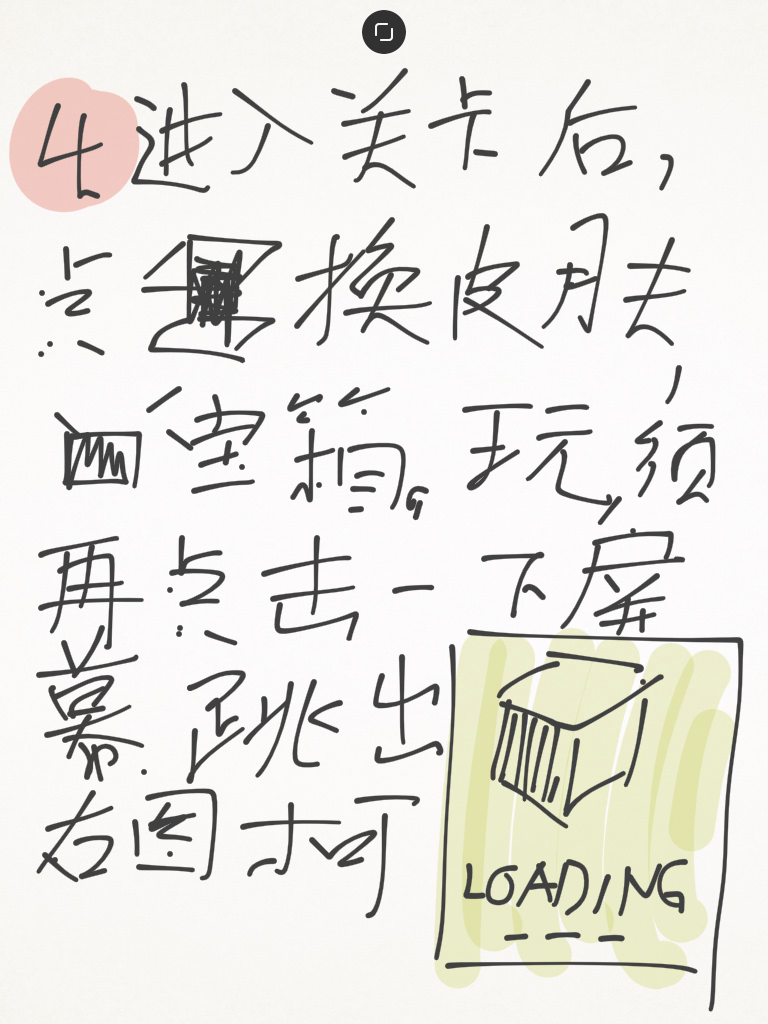 4进入关卡后,
点 换皮肤
宝箱。玩,须
再点击一下屏
幕.跳出
右图才可
LOADING
---